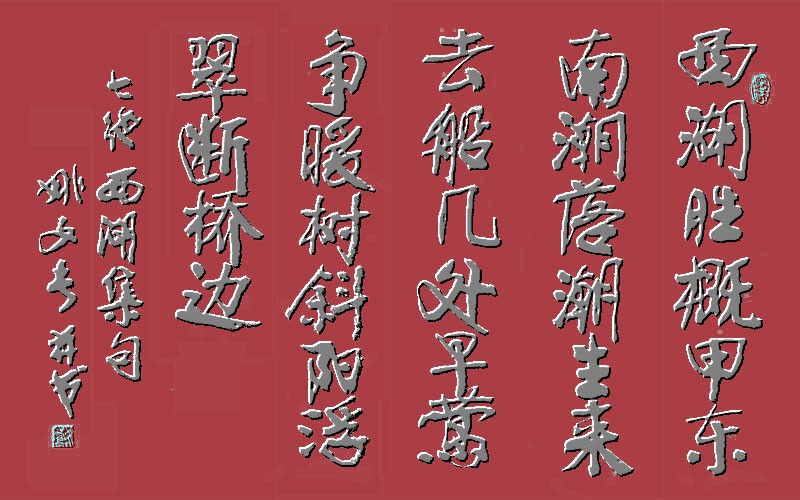 西湖胜概甲东
南潮落潮生来
去船几处早莺
争暖树斜阳
翠断桥边
七绝 西湖集句
姚文 并书